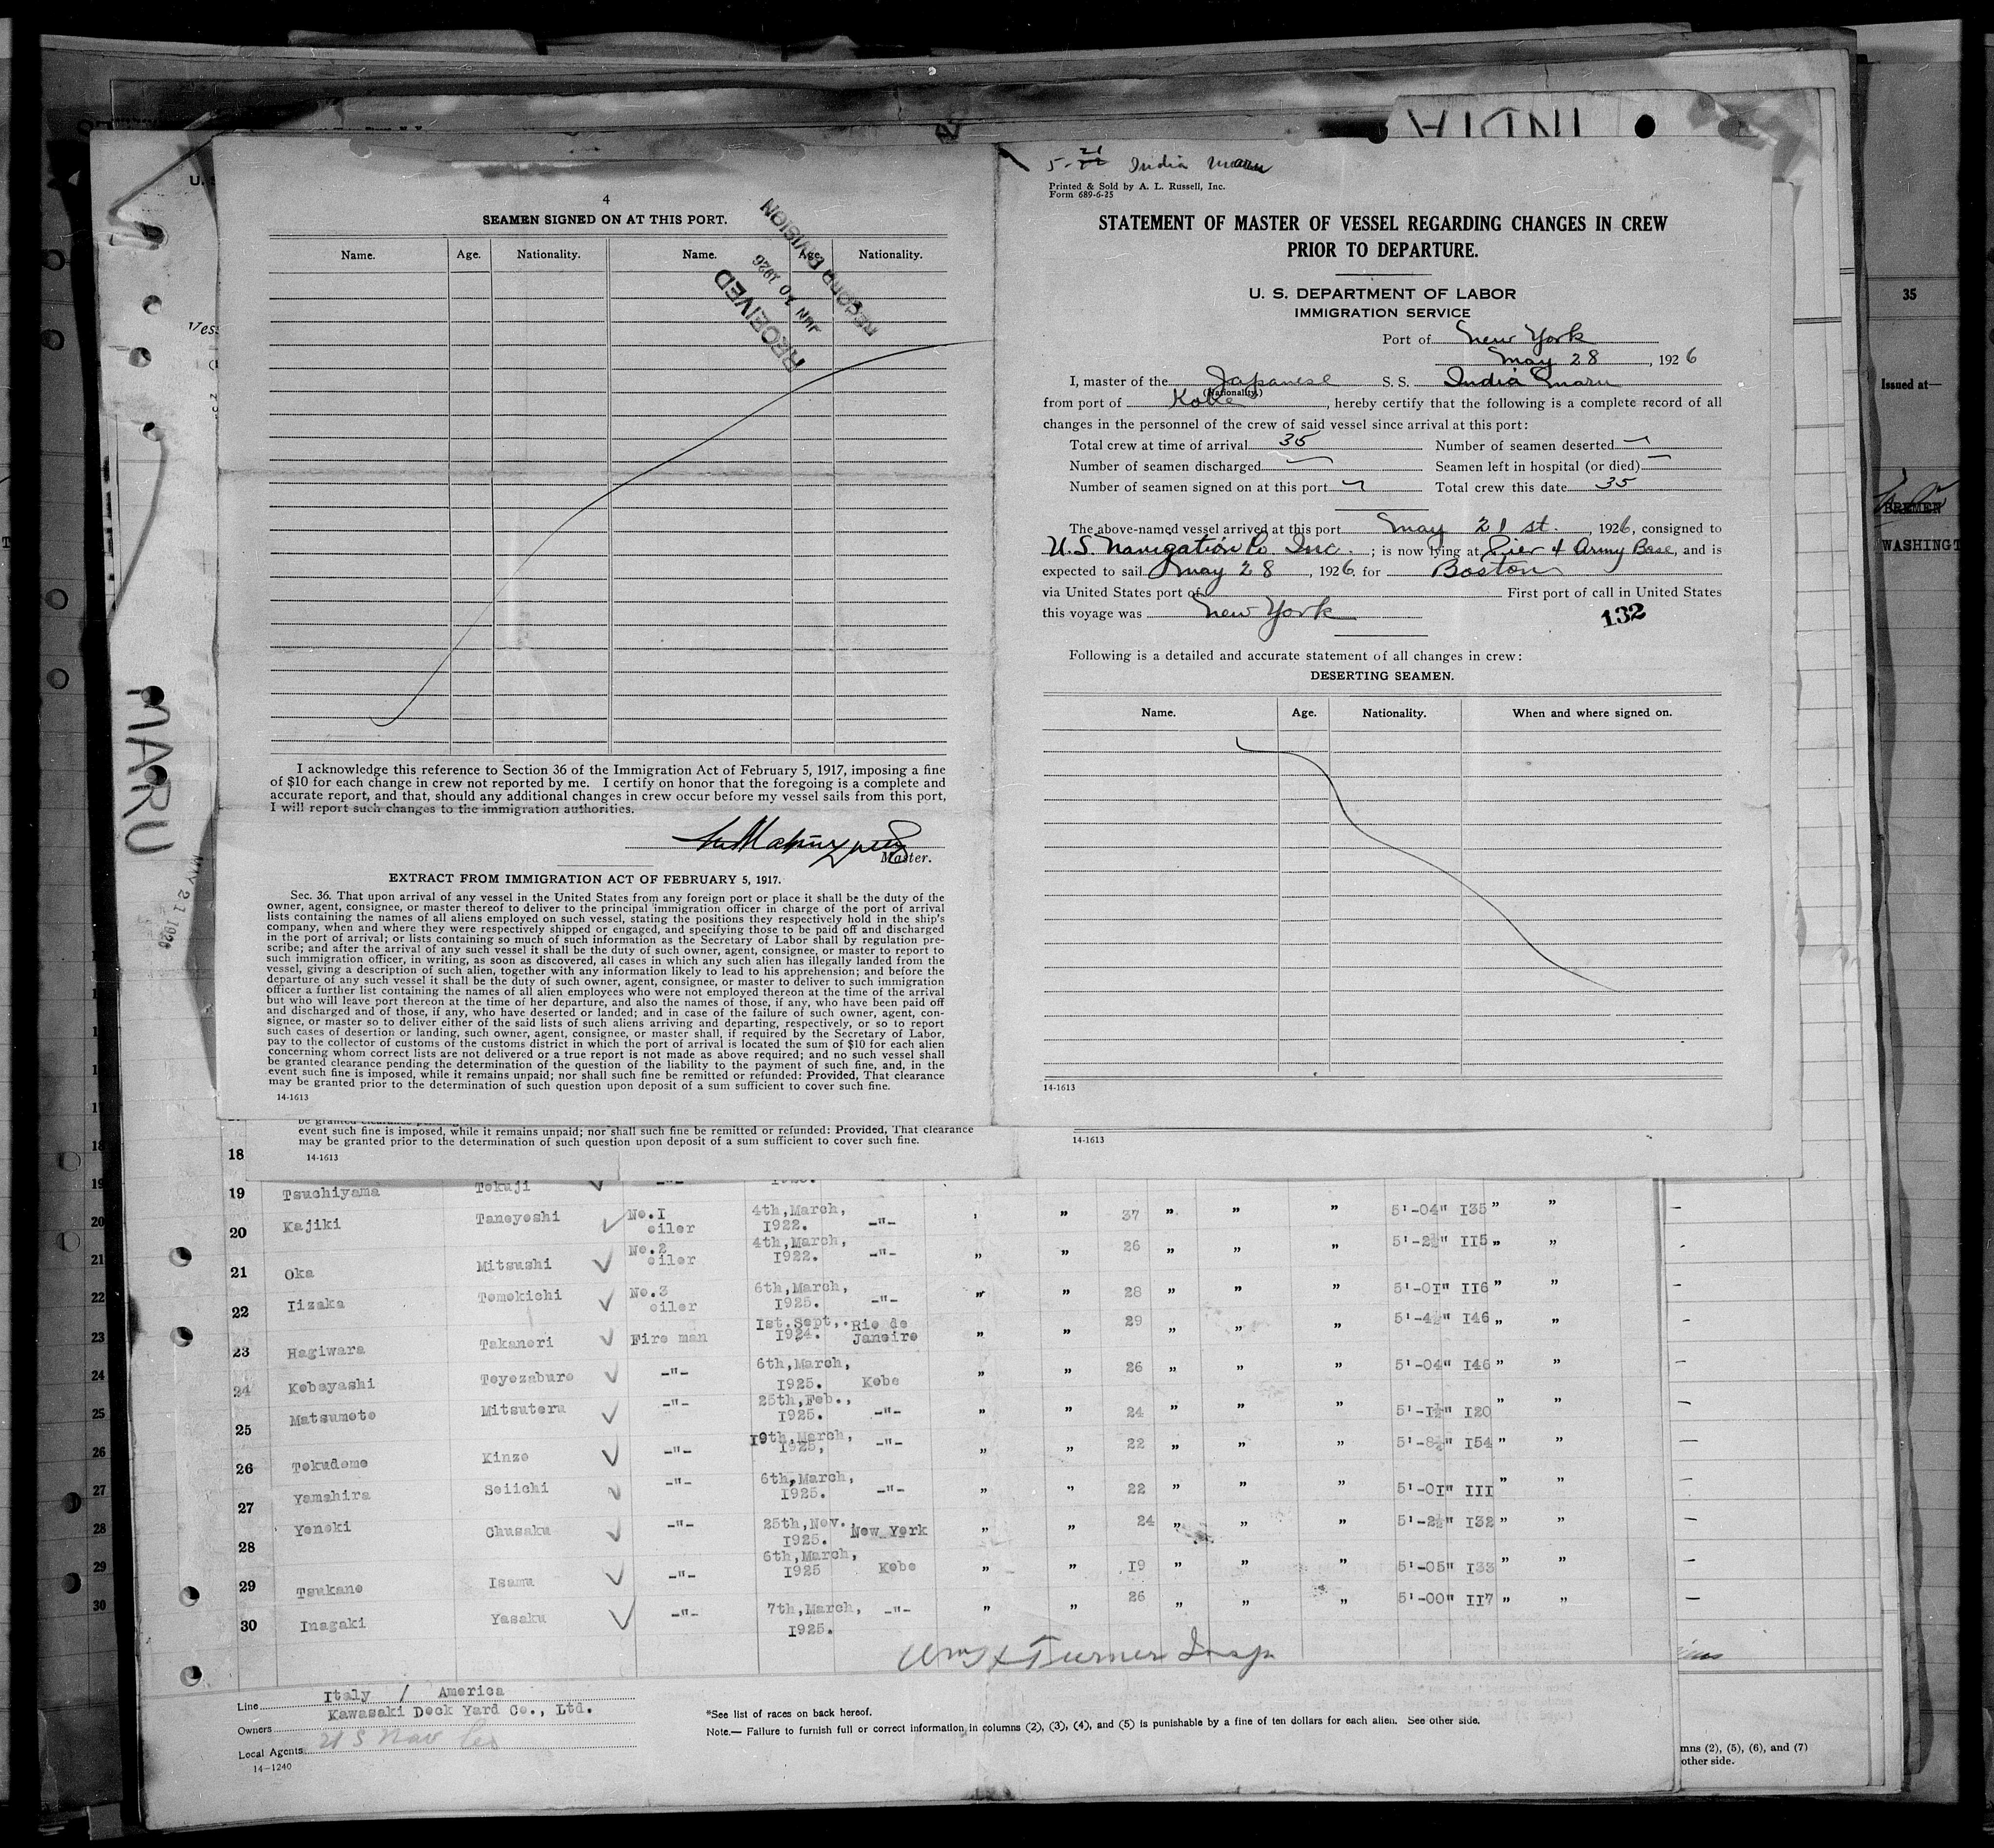 4
SEAMEN SIGNED ON AT THIS PORT.
Name. Age. Nationality. Name. Age. Nationality.
RECEIVED
JUN 10 1926
RECORD DIVISION
I acknowledge this reference to Section 36 of the Immigration Act of February 5, 1917, imposing a fine
of $10 for each change in crew not reported by me. I certify on honor that the foregoing is a complete and
accurate report, and that, should any additional changes in crew occur before my vessel sails from this port,
I will report such changes to the immigration authorities.
Master.
EXTRACT FROM IMMIGRATION ACT OF FEBRUARY 5, 1917.
Sec. 36. That upon arrival of any vessel in the United States from any foreign port or place it shall be the duty of the
owner, agent, consignee, or master thereof to deliver to the principal immigration officer in charge of the port of arrival
lists containing the names of all aliens employed on such vessel, stating the positions they respectively hold in the ship's
company, when and where they were respectively shipped or engaged, and specifying those to be paid off and discharged
in the port of arrival; or lists containing so much of such information as the Secretary of Labor shall by regulation pre-
scribe; and after the arrival of any such vessel it shall be the duty of such owner, agent, consignee, or master to report to
such immigration officer, in writing, as soon as discovered, all cases in which any such alien has illegally landed from the
vessel, giving a description of such alien, together with any information likely to lead to his apprehension; and before the
departure of any such vessel it shall be the duty of such owner, agent, consignee, or master to deliver to such immigration
officer a further list containing the names of all alien employees who were not employed thereon at the time of the arrival
but who will leave port thereon at the time of her departure, and also the names of those, if any, who have been paid off
and discharged and of those, if any, who have deserted or landed; and in case of the failure of such owner, agent, con-
signee, or master so to deliver either of the said lists of such aliens arriving and departing, respectively, or so to report
such cases of desertion or landing, such owner, agent, consignee, or master shall, if required by the Secretary of Labor,
pay to the collector of customs of the customs district in which the port of arrival is located the sum of $10 for each alien
concerning whom correct lists are not delivered or a true report is not made as above required; and no such vessel shall
be granted clearance pending the determination of the question of the liability to the payment of such fine, and, in the
event such fine is imposed, while it remains unpaid; nor shall such fine be remitted or refunded: Provided, That clearance
may be granted prior to the determination of such question upon deposit of a sum sufficient to cover such fine.
14-1613
INDIA
5- 21 India Maru
Printed & Sold by A. L. Russell, Inc.
Form 689-6-25
STATEMENT OF MASTER OF VESSEL REGARDING CHANGES IN CREW
PRIOR TO DEPARTURE.
U. S. DEPARTMENT OF LABOR
IMMIGRATION SERVICE
Port of New York
May 28, 1926
I, master of the Japanese S. S. India Maru
(Nationality.)
from port of Kobe, hereby certify that the following is a complete record of all
changes in the personnel of the crew of said vessel since arrival at this port:
Total crew at time of arrival 35 Number of seamen deserted
Number of seamen discharged Seamen left in hospital (or died)
Number of seamen signed on at this port Total crew this date 35
The above-named vessel arrived at this port May 21 st., 1926, consigned to
U.S. Navigation Co Inc. ; is now lying at Pier 4 Army Base, and is
expected to sail May 28, 1926. for Boston
via United States port of First port of call in United States
this voyage was New York
132
Following is a detailed and accurate statement of all changes in crew:
DESERTING SEAMEN.
Name. Age. Nationality. When and where signed on.
14-1613
event such fine is imposed, while it remains unpaid; nor shall such fine be remitted or refunded: Provided, That clearance
may be granted prior to the determination of such question upon deposit of a sum sufficient to cover such fine.
14-1613
14-1613
MARU
MAY 21 1926
35
Issued at—
BREMEN
WASHINGT
18
19 Tsuchiyama Tokuji -"-
20 Kajiki Taneyoshi No.I oiler 4th,March, I922. -"- " 37 " " " 5'-04" I35 " "
21 Oka Mitsushi No.2 oiler 4th,March, I922. -"- " " 26 " " " 5'-2½" II5 " "
22 Iizaka Tomokichi No.3 oiler 6th,March, I925. -"- " " 28 " " " 5'-0I" II6 " "
23 Hagiwara Takanori Fire man Ist.Sept,. I924. Rio de Janeiro " " 29 " " " 5'-4½" I46 " "
24 Kobayashi Toyozaburo -"- 6th,March, I925. Kobe " " 26 " " " 5'-04" I46 " "
25 Matsumoto Mitsuteru -"- 25th,Feb., I925. -"- " " 24 " " " 5'-I½" I20 " "
26 Tokudome Kinzo -"- I9th,March, I925, -"- " " 22 " " " 5'-8½" I54 " "
27 Yamahira Seiichi -"- 6th,March, I925. -"- " " 22 " " " 5'-0I" III " "
28 Yonoki Chusaku -"- 25th,Nov. I925. New York " " 24 " " " 5'-2½" I32 " "
29 Tsukano Isamu -"- 6th,March, I925 Kobe " " I9 " " " 5'-05" I33 " "
30 Inagaki Yasaku -"- 7th,March, I925. -"- " " 26 " " " 5'-00" II7 " "
Turner Insp
Line Italy / America
Owners Kawasaki Dock Yard Co., Ltd.
Local Agents U S Nav Co
14-1240
*See list of races on back hereof.
Note.— Failure to furnish full or correct information in columns (2), (3), (4), and (5) is punishable by a fine of ten dollars for each alien. See other side.
mns (2), (5), (6), and (7)
other side.
17
18
19
20
21
22
23
24
25
26
27
28
29
30